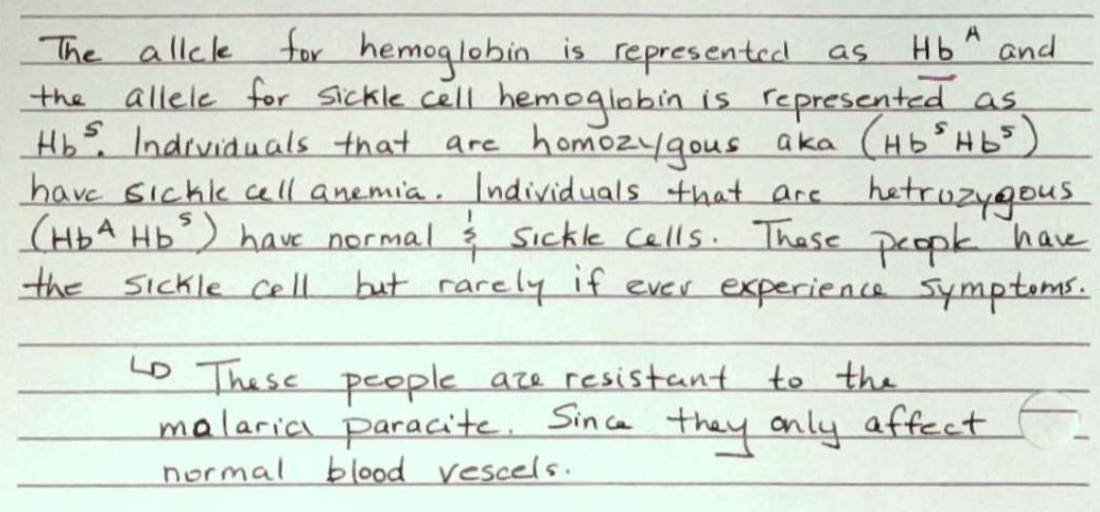 The allele for hemoglobin is represented as Hbᴬ and
the allele for sickle cell hemoglobin is represented as
Hbˢ. Individuals that are homozygous aka (HbˢHbˢ)
have sickle cell anemia. Individuals that are hetrozygous
(Hbᴬ Hbˢ) have normal & sickle cells. These people have
the sickle cell but rarely if ever experience symptoms.
↳ These people are resistant to the
malaria paracite. Since they only affect
normal blood vescels.